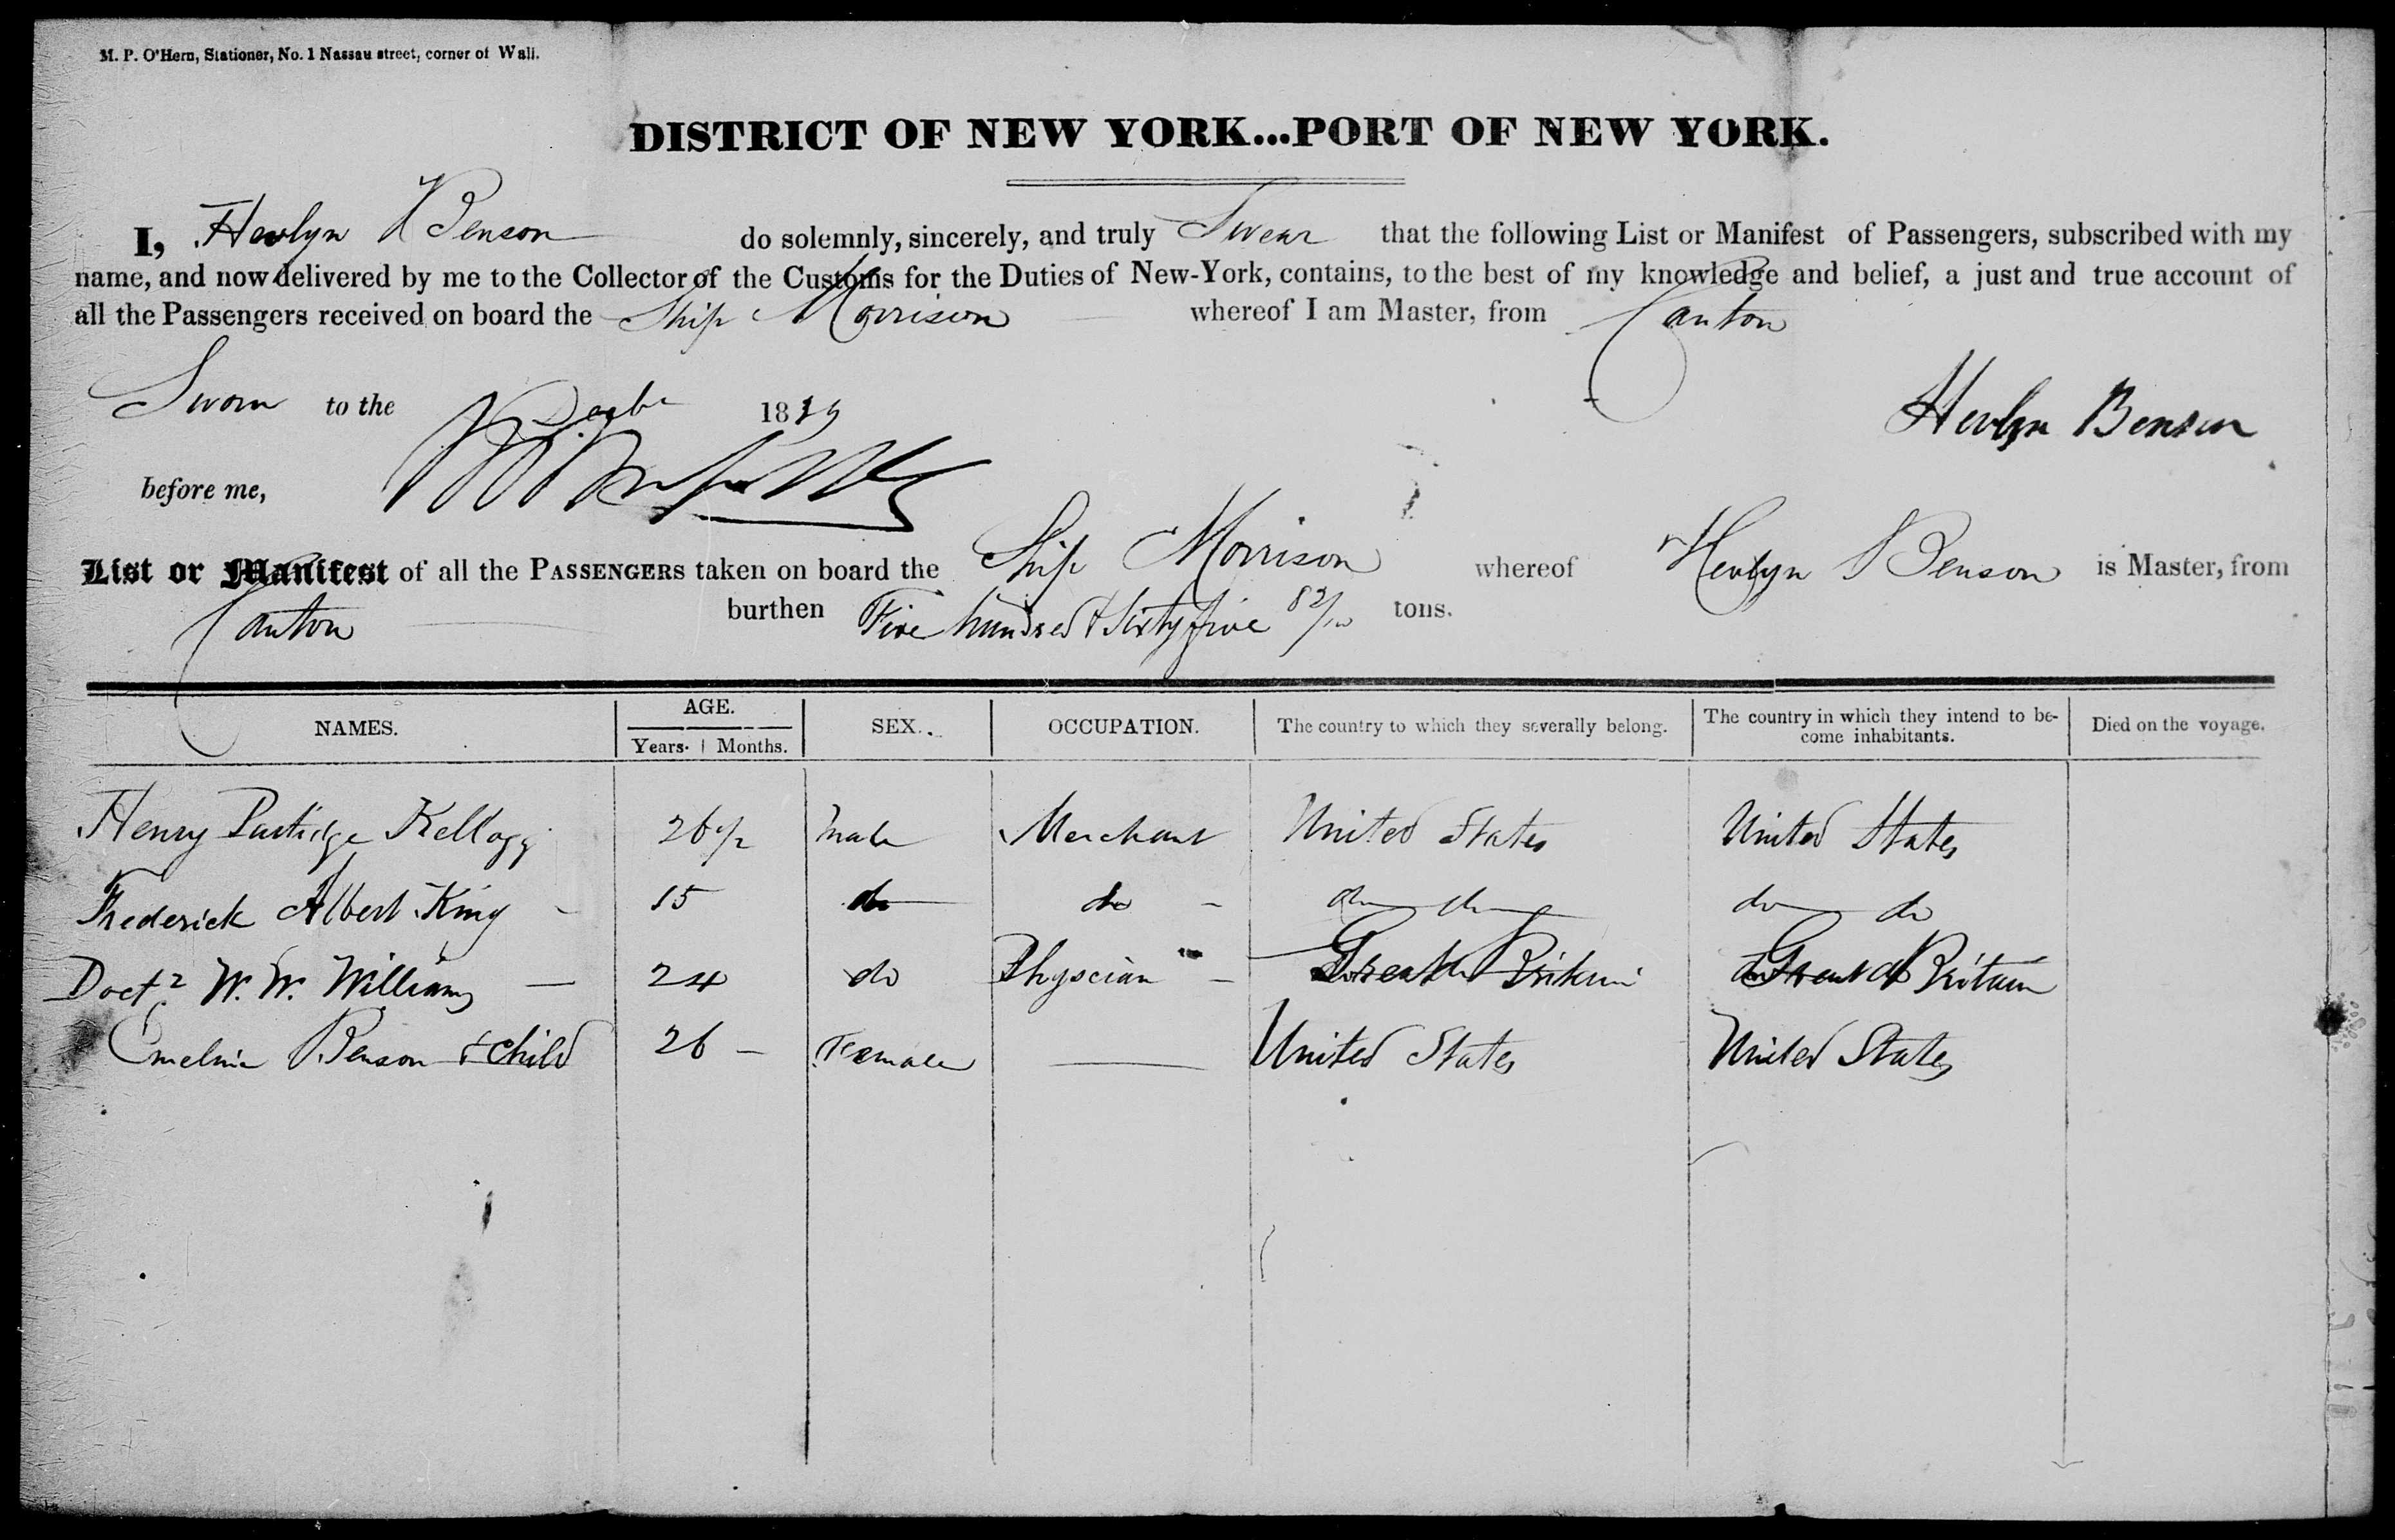 M. P. O'Hern, Stationer, No. 1 Nassau street, corner of Wall.
DISTRICT OF NEW YORK...PORT OF NEW YORK.
I, Hevlyn Benson do solemnly, sincerely, and truly Swear that the following List or Manifest of Passengers, subscribed with my
name, and now delivered by me to the Collector of the Customs for the Duties of New-York, contains, to the best of my knowledge and belief, a just and true account of
all the Passengers received on board the Ship Morrison whereof I am Master, from Canton
Sworn to the 18
Hevlyn Benson
before me,
List or Manifest of all the PASSENGERS taken on board the Ship Morrison whereof Hevlyn Benson is Master, from
Canton burthen Five hundred & Sixty five 82/ tons.
NAMES. AGE. SEX. OCCUPATION. The country to which they severally belong. The country in which they intend to be-
come inhabitants. Died on the voyage.
Years. Months.
Henry Partidge Kellogg 26 1/2 Male Merchant United States United States
Frederick Albert King - 15 do do - do do do do
Doctr W. W. Williams — 24 do Physcian - Great Britain Great Britain
Emeline Benson & child 26 — Female — United States United States